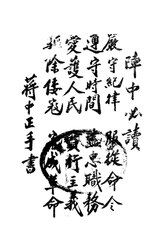 陣中必讀
嚴守紀律 服從命令
遵守時間 盡忠職務
愛護人民 實行主義
掃除倭寇 完成革命
蔣中正手書